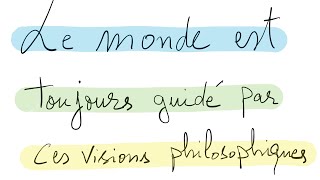 Le monde est
toujours guidé par
ces visions philosophiques